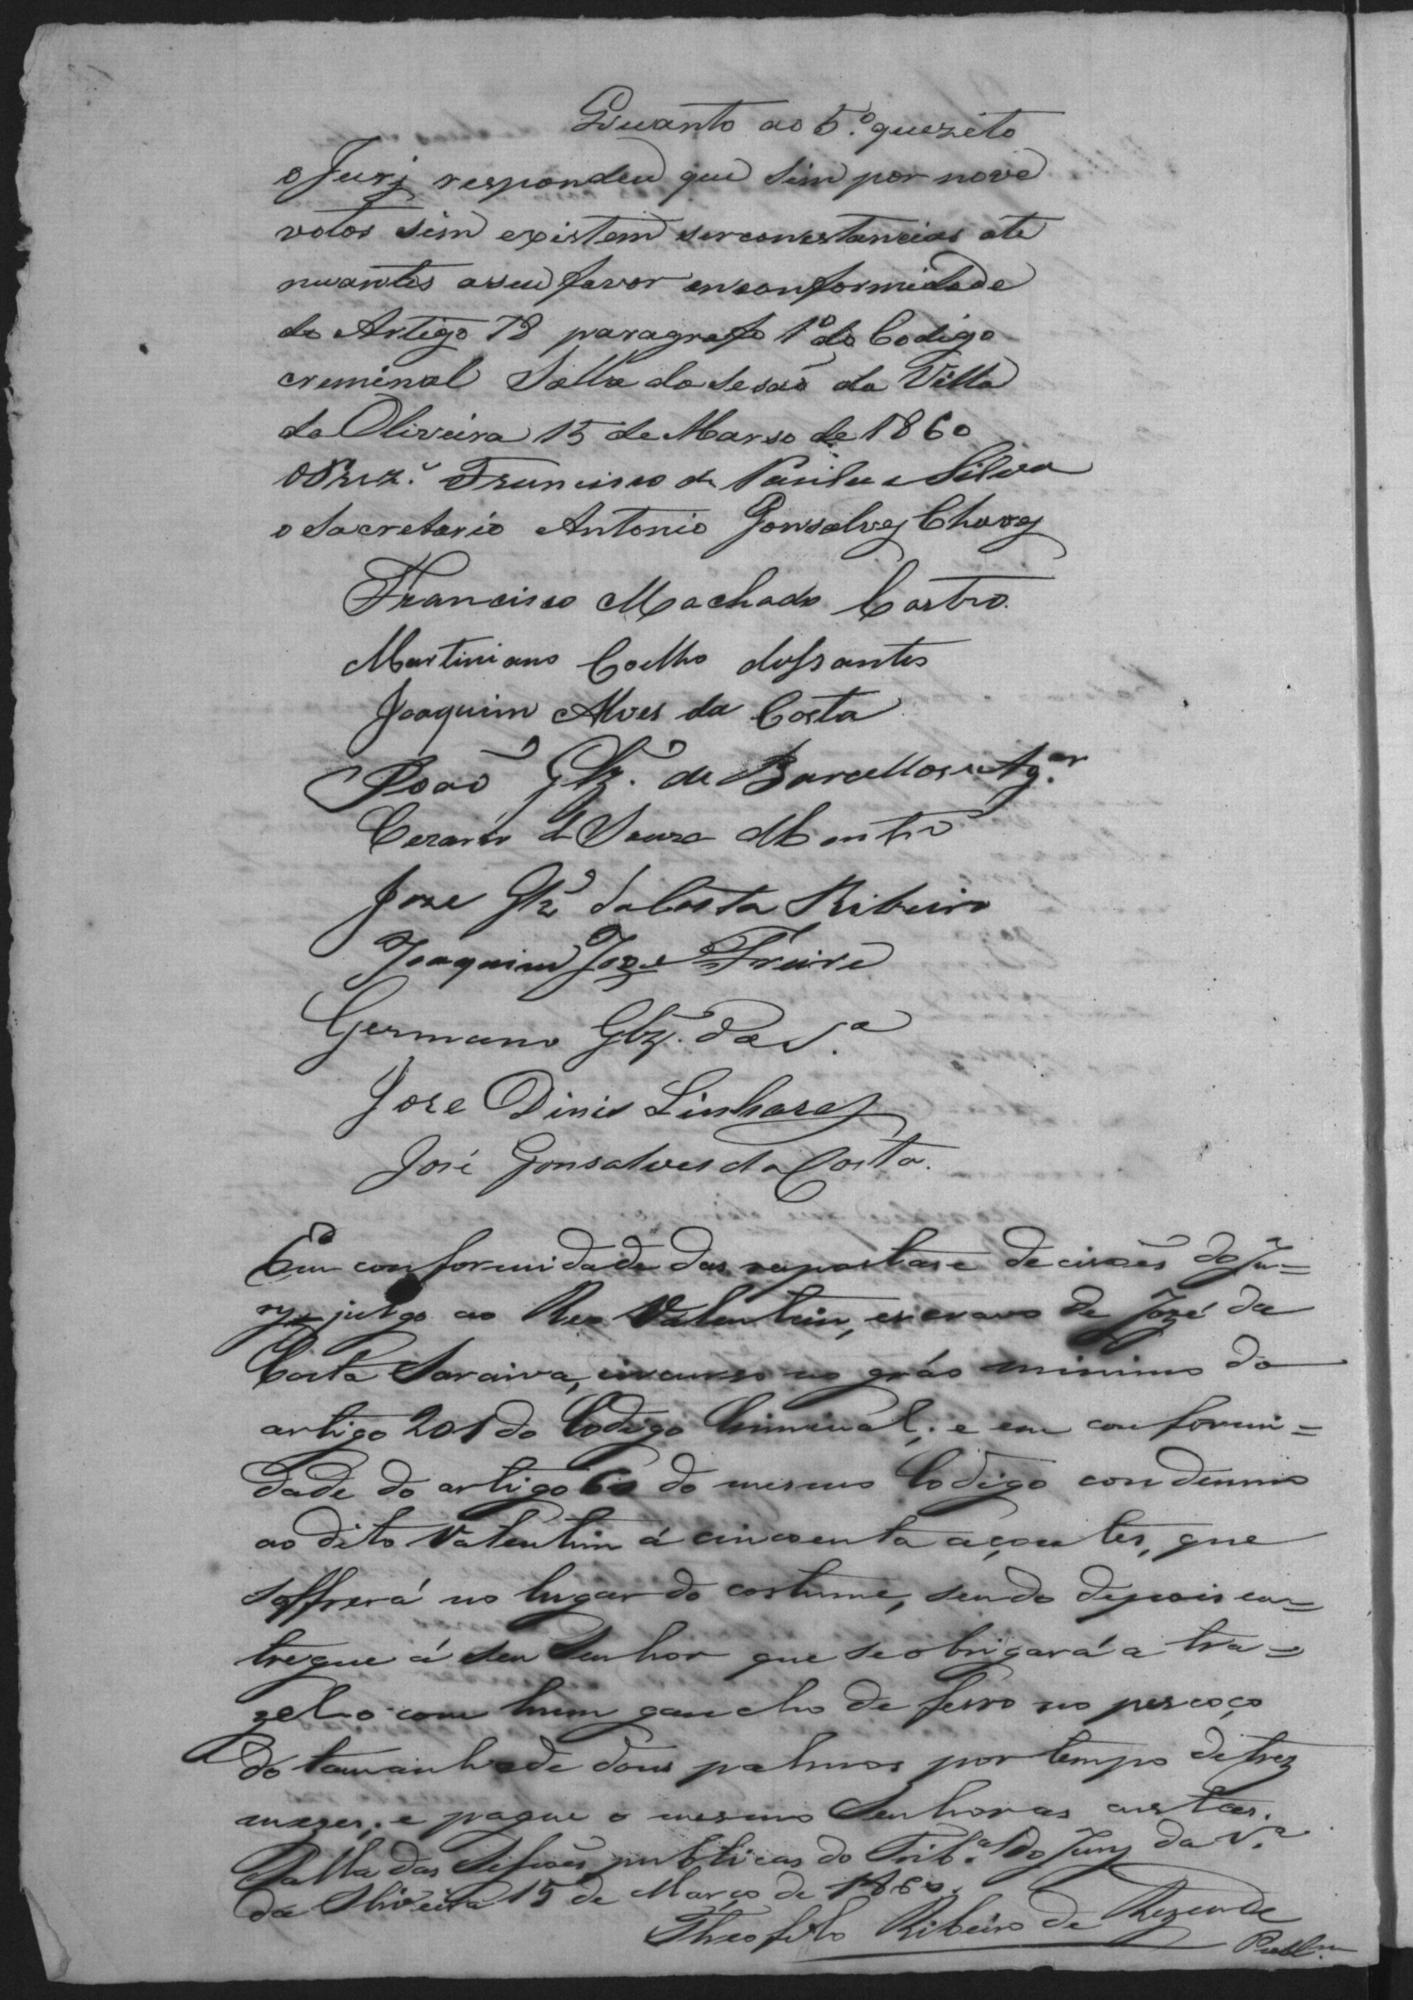 Quanto ao 5.º quezito
o Jurj respondeu que sim por nove
votos sim existem sirconestancias ate
nuantes aseu favor enconformidade
do Artigo 18 paragrafo 1º do Codigo
creminal Salla da Sesaõ da Villa
da Oliveira 15 de Marso de 1860
Francisco de Paula e Silva
o Sacretario Antonio Gonsalves Chaves
Francisco Machado Castro
Martiniano Coelho dos Santos
Joaquim Alves da Costa
Joaõ Glz. de Barcellos e Ag.ar
Cezario de Souza Montr.º
Joze Glz da Costa Ribeiro
Joaquim Joze Freire
Germano Glz. da S.ª
Joze Dinis Linhares
José Gonsalves da Costa.
Em conformidade das respostas e decisões do Ju=
ry julgo ao Reo Valentim, escravo de José da
Costa Saraiva, incurso no gráo minimo do
artigo 201 do Codigo Criminal; e em conformi=
dade do artigo 60 do mesmo Codigo condemno
ao dito Valentim á cincoenta açoutes, que
soffrerá no lugar do costume, sendo depois en=
tregue á seu Senhor que se obrigará a tra=
zelo com hum gancho de ferro no pescoço
do tamanho de dous palmos por tempo de trez
mezes; e pague o mesmo Senhor as custas.
Salla das Sessoẽs publicas do Trib.al do Jury da V.ª
da Oliveira 15 de Março de 1860.
Theofilo Ribeiro de Rezende